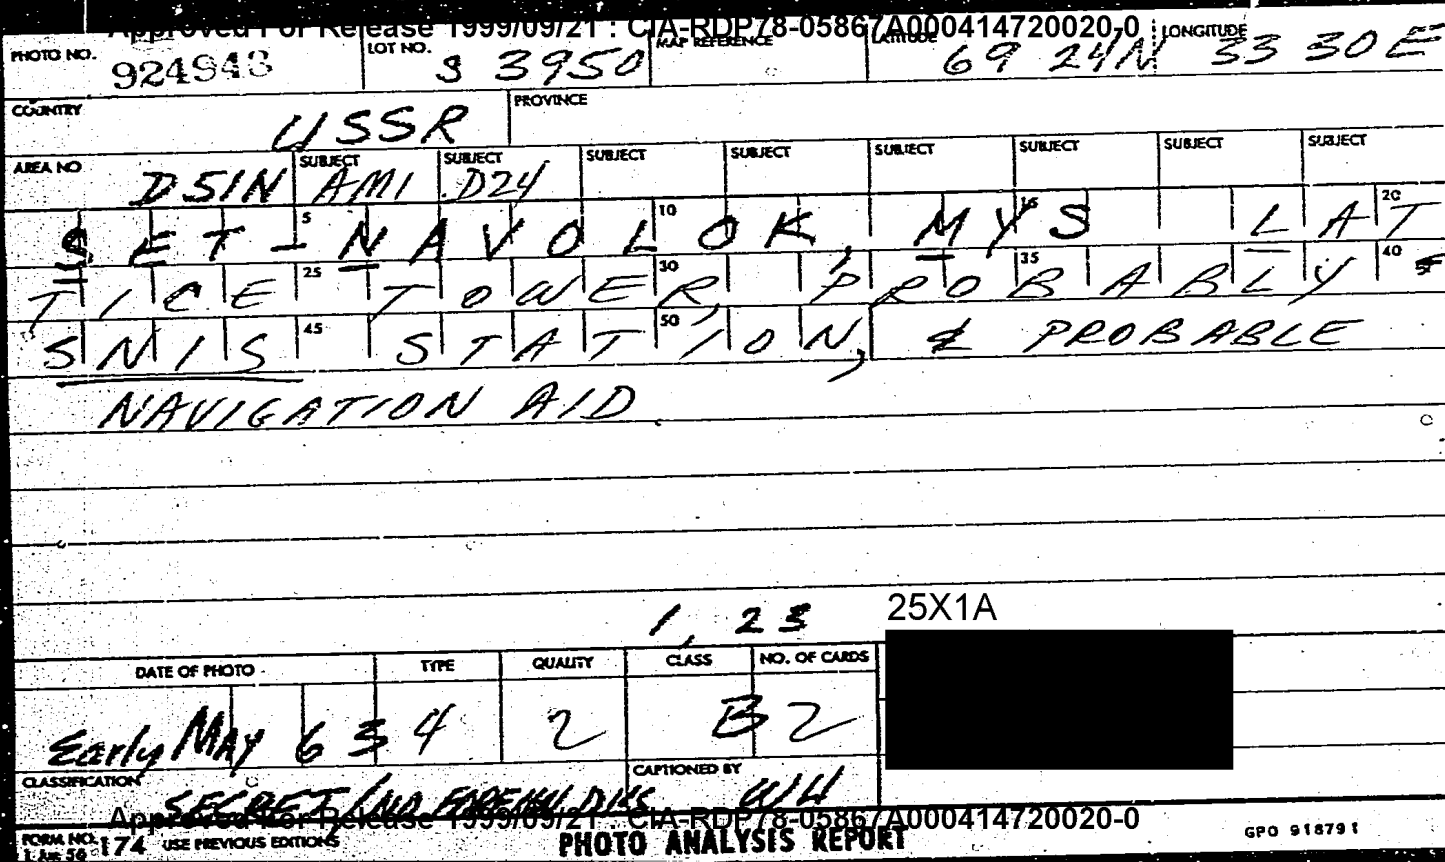 Approved For Release 1999/09/21 : CIA-RDP78-05867A000414720020-0
PHOTO NO. 924943 LOT NO. S 3950 MAP REFERENCE LATITUDE 69 24N LONGITUDE 33 30E
COUNTRY USSR PROVINCE
AREA NO D51N SUBJECT AMI SUBJECT D24 SUBJECT SUBJECT SUBJECT SUBJECT SUBJECT SUBJECT
5 10 15 20
SET-NAVOLOK, MYS LAT
25 30 35 40
TICE TOWER, PROBABLY
45 50
SNIS STATION, & PROBABLE
NAVIGATION AID
1, 23
25X1A
DATE OF PHOTO TYPE QUALITY CLASS NO. OF CARDS
Early MAY 63 4 2 B 2
CLASSIFICATION SECRET/NO FOREIGN DISS CAPTIONED BY WH
Approved For Release 1999/09/21 : CIA-RDP78-05867A000414720020-0
FORM NO. 174 USE PREVIOUS EDITIONS PHOTO ANALYSIS REPORT GPO 918791
1 Jun 56